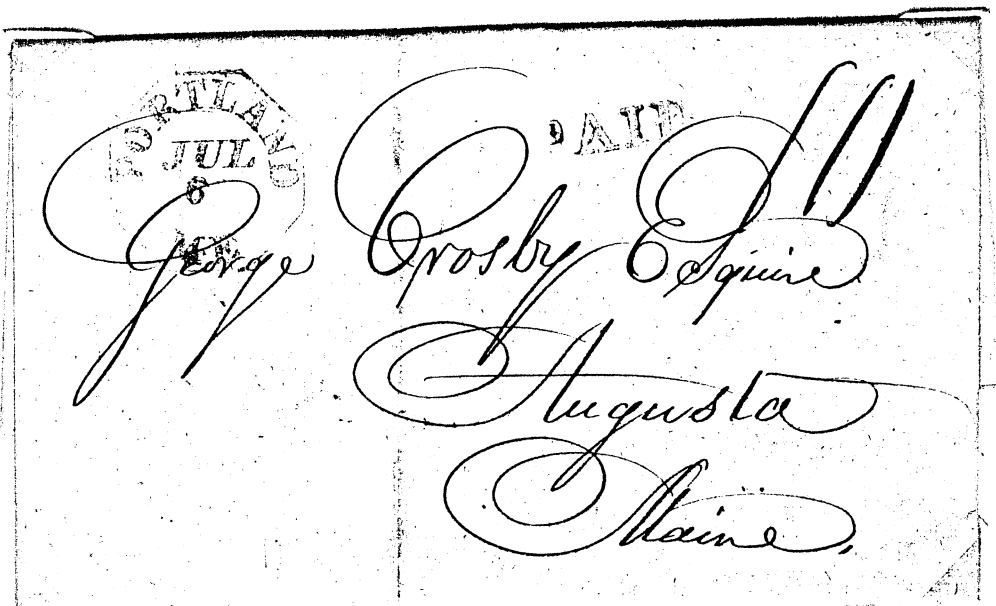 PORTLAND
JUL
6
ME
PAID
George Crosby Esquire
Augusta
Maine.